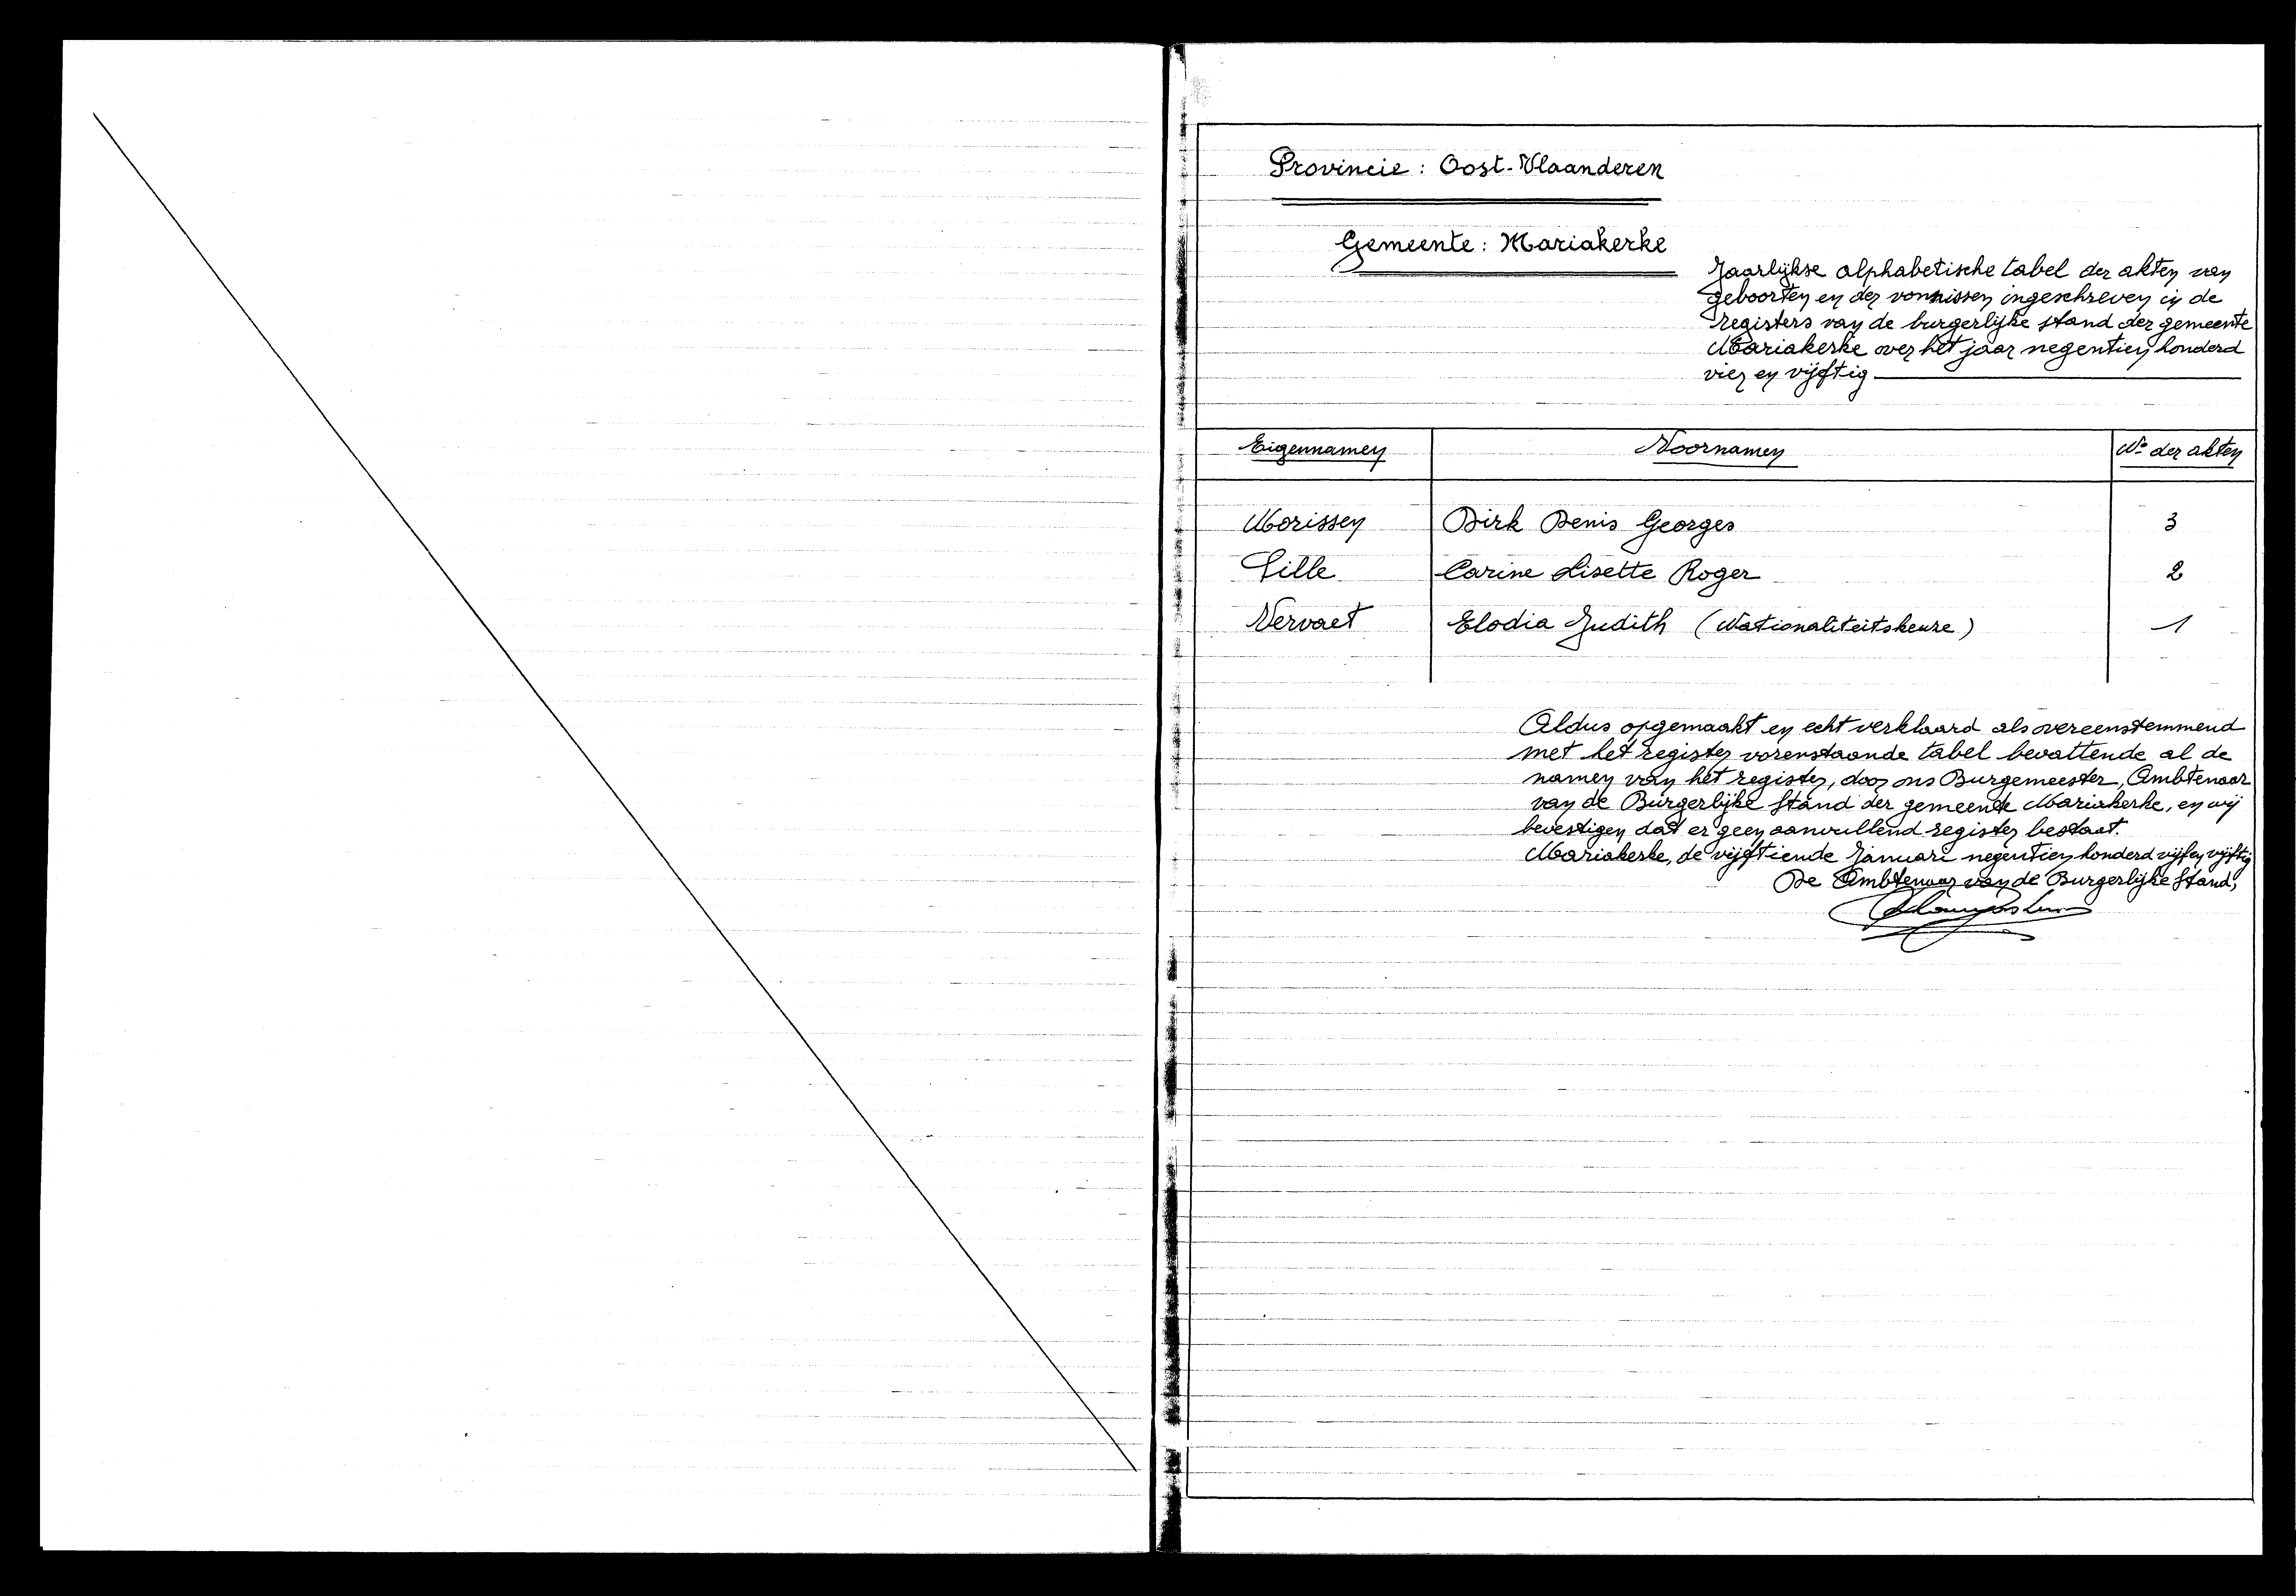 Provincie : Oost-Vlaanderen
Gemeente : Mariakerke
Jaarlijkse alphabetische tabel der akten van
geboorten en der vonnissen ingeschreven in de
registers van de burgerlijke stand der gemeente
Mariakerke over het jaar negentien honderd
vier en vijftig
Eigennamen Voornamen No der akten
Morissen Dirk Denis Georges 3
Tille Carine Lisette Roger 2
Vervaet Elodia Judith (Nationaliteitskeuze) 1
Aldus opgemaakt en echt verklaard als overeenstemmend
met het register vorenstaande tabel bevattende al de
namen van het register, door ons Burgemeester, Ambtenaar
van de Burgerlijke Stand der gemeente Mariakerke, en wij
bevestigen dat er geen aanvullend register bestaat.
Mariakerke, de vijftiende Januari negentien honderd vijf en vijftig
De Ambtenaar van de Burgerlijke Stand,